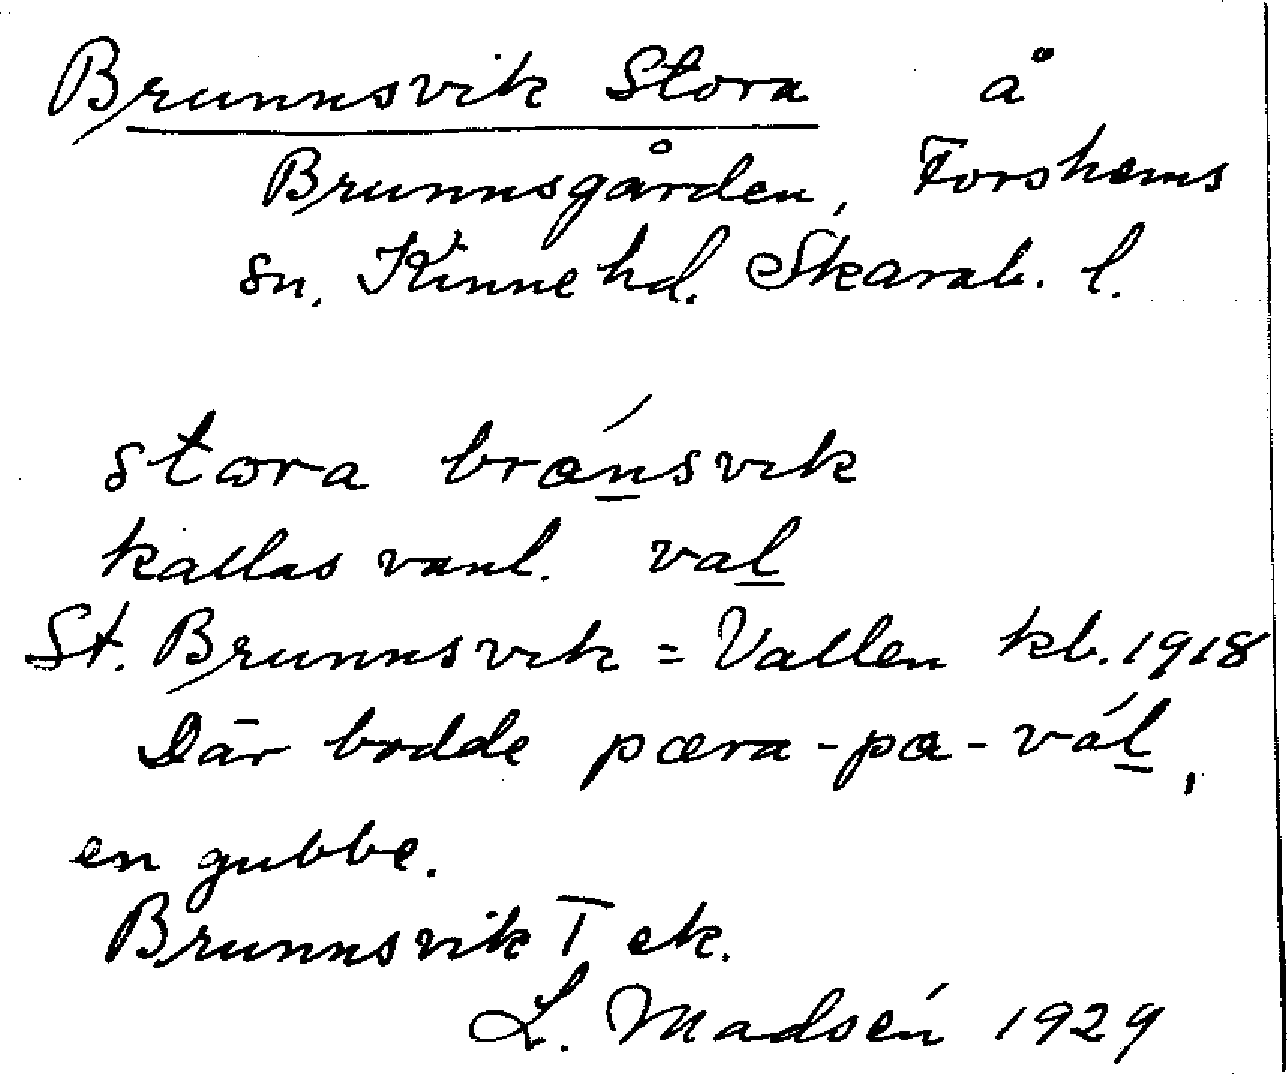 Brunnsvik Stora å
Brunnsgården, Forshems
sn. Kinne hd. Skarab. l.
stæra brǿnsvik
kallas vanl. val
St. Brunnsvik = Vallen kb. 1918
Där bodde pæra-pæ-vál,
en gubbe.
Brunnsvik T ek.
L. Madsén 1929